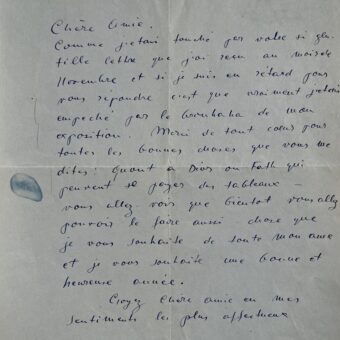 Chère Amie.
Comme j'etais touché par votre si gen-
tille lettre que j'ai reçu au mois de
Novembre et si je suis en retard pour
vous repondre c'est que vraiment j'etais
empeché par le brouhaha de mon
exposition. Merci de tout cœur pour
toutes les bonnes choses que vous me
dites! Quant à Dior ou Fath qui
peuvent se payer des tableaux —
vous allez voir que bientot vous allez
pouvoir le faire aussi chose que
je vous souhaite de toute mon ame
et je vous souhaite une bonne et
heureuse année.
Croyez Chère amie en mes
sentiments les plus affectueux